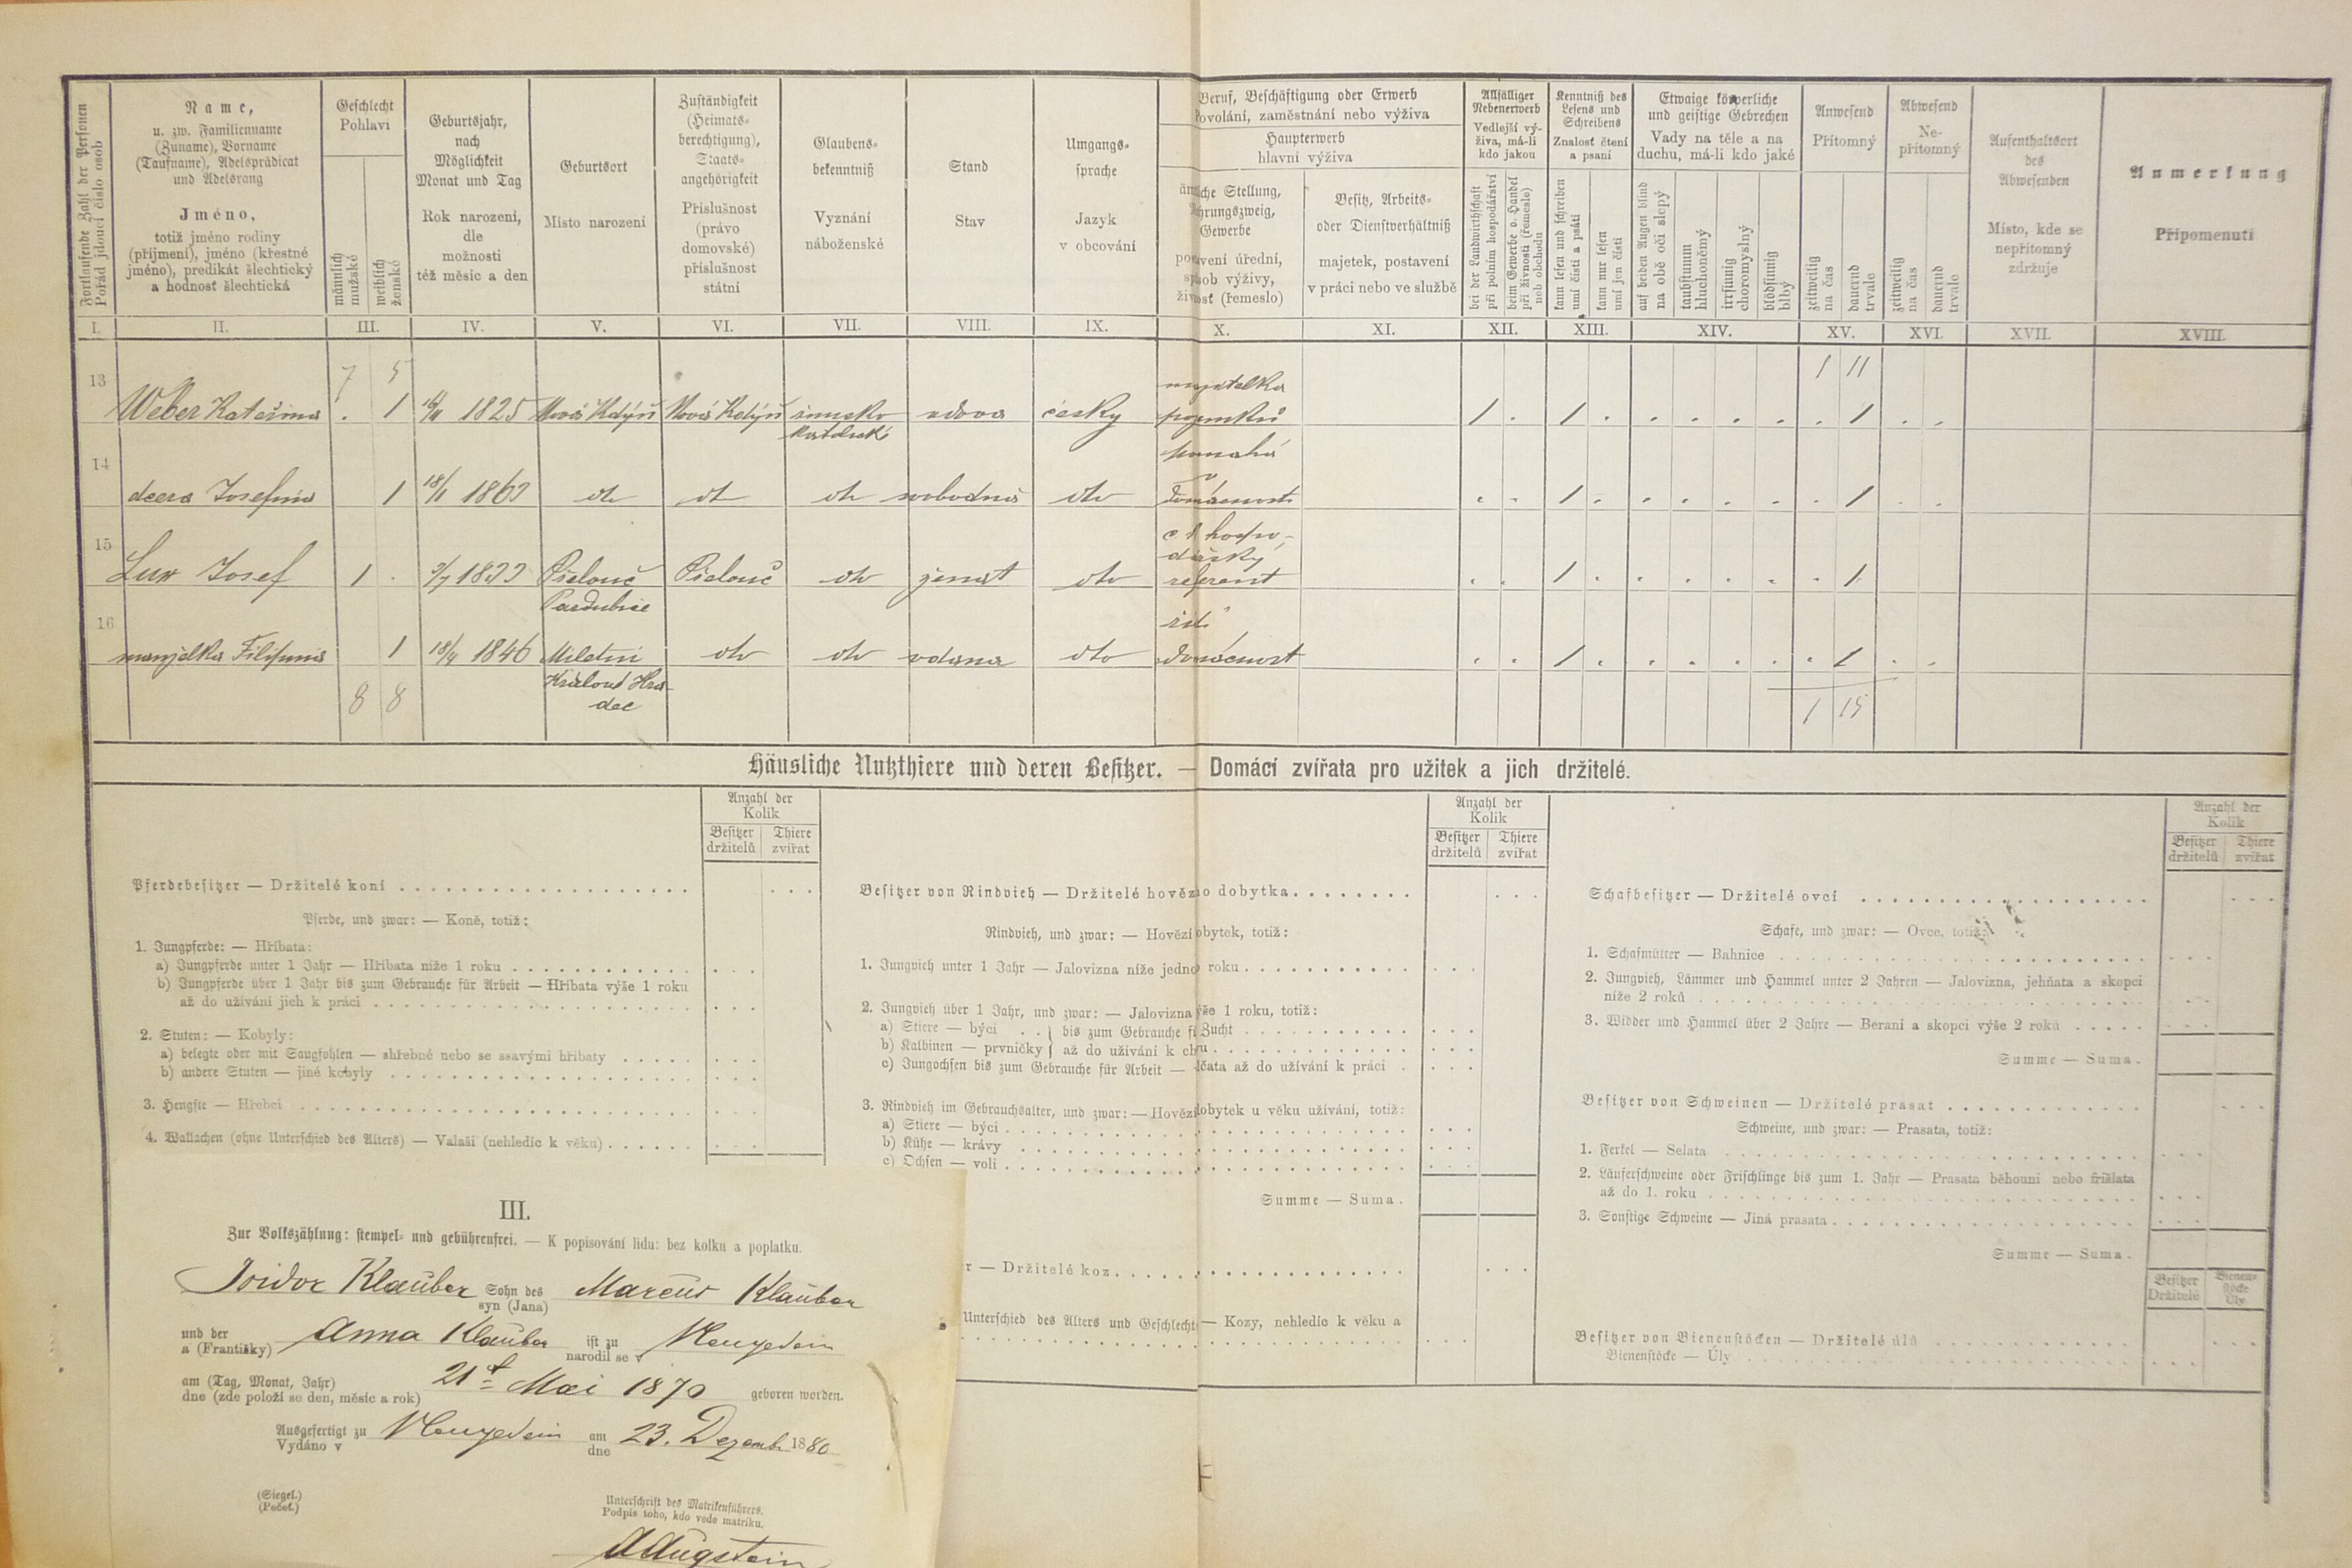 Fortlaufende Zahl der Personen
Pořád jdoucí číslo osob
Name,
u. zw. Familienname
(Zuname), Vorname
(Taufname), Adelsprädicat
und Adelsrang
Jméno,
totiž jméno rodiny
(příjmení), jméno (křestné
jméno), predikát šlechtický
a hodnosť šlechtická
Geschlecht
Pohlaví
männlich
mužské
weiblich
ženské
Geburtsjahr,
nach
Möglichkeit
Monat und Tag
Rok narození,
dle
možnosti
též měsíc a den
Geburtsort
Místo narození
Zuständigkeit
(Heimats-
berechtigung),
Staats-
angehörigkeit
Příslušnost
(právo
domovské)
příslušnost
státní
Glaubens-
bekenntniß
Vyznání
náboženské
Stand
Stav
Umgangs-
sprache
Jazyk
v obcování
Beruf, Beschäftigung oder Erwerb
Povolání, zaměstnání nebo výživa
Haupterwerb
hlavní výživa
che Stellung,
hrungszweig,
Gewerbe
avení úřední,
sob výživy,
(řemeslo)
Besitz, Arbeits-
oder Dienstverhältniß
majetek, postavení
v práci nebo ve službě
Allfälliger
Nebenerwerb
Vedlejší vý-
živa, má-li
kdo jakou
bei der Landwirthschaft
při polním hospodářství
beim Gewerbe o. Handel
při živnosti (řemesle)
neb obchodu
Kenntniß des
Lesens und
Schreibens
Znalosť čtení
a psaní
kann lesen und schreiben
umí čísti a psáti
kann nur lesen
umí jen čísti
Etwaige körperliche
und geistige Gebrechen
Vady na těle a na
duchu, má-li kdo jaké
auf beiden Augen blind
na obě oči slepý
taubstumm
hluchoněmý
irrsinnig
choromyslný
blödsinnig
blbý
Anwesend
Přítomný
zeitweilig
na čas
dauernd
trvale
Abwesend
Ne-
přítomný
zeitweilig
na čas
dauernd
trvale
Aufenthaltsort
des
Abwesenden
Místo, kde se
nepřítomný
zdržuje
Anmerkung
Připomenutí
I. II. III. IV. V. VI. VII. VIII. IX. X. XI. XII. XIII. XIV. XV. XVI. XVII. XVIII.
7 5 1 11
13 Weber Kateřina . 1 1825 Nová Kdyň Nová Kdyň římsko katolické vdova česky majitelka pozemků 1 . 1 . . . . . . 1 . .
14 dcera Josefina 1 18/1 1863 dto dto dto svobodná dto pomahá v domácnosti . . 1 . . . . . . 1 . .
15 Lux Josef 1 . 1833 Přelouč Pardubice Přelouč dto ženat dto c. k. hospodářský referent . . 1 . . . . . . 1
16 manželka Filipina 1 18/4 1846 Miletín Králové Hradec dto dto vdana dto řídí domácnost . . 1 . . . . . . 1 . .
8 8 1 15
Häusliche Nutzthiere und deren Besitzer. — Domácí zvířata pro užitek a jich držitelé.
Anzahl der
Kolik
Besitzer Thiere
držitelů zvířat
Pferdebesitzer — Držitelé koní
Pferde, und zwar: — Koně, totiž:
1. Jungpferde: — Hříbata:
a) Jungpferde unter 1 Jahr — Hříbata níže 1 roku
b) Jungpferde über 1 Jahr bis zum Gebrauche für Arbeit — Hříbata výše 1 roku
až do užívání jich k práci
2. Stuten: — Kobyly:
a) belegte oder mit Saugfohlen — shřebné nebo se ssavými hříbaty
b) andere Stuten — jiné kobyly
3. Hengste — Hřebci
4. Wallachen (ohne Unterschied des Alters) — Valaši (nehledíc k věku)
Anzahl der
Kolik
Besitzer Thiere
držitelů zvířat
Besitzer von Rindvieh — Držitelé hovězío dobytka
Rindvieh, und zwar: — Hovězí obytek, totiž:
1. Jungvieh unter 1 Jahr — Jalovizna níže jedno roku
2. Jungvieh über 1 Jahr, und zwar: — Jalovizna ýše 1 roku, totiž:
a) Stiere — býci . . bis zum Gebrauche fü Zucht
b) Kalbinen — prvničky až do užívání k chu
c) Jungochsen bis zum Gebrauche für Arbeit — lčata až do užívání k práci
3. Rindvieh im Gebrauchsalter, und zwar: — Hovězí dobytek u věku užívání, totiž:
a) Stiere — býci
b) Kühe — krávy
c) Ochsen — voli
Summe — Suma.
r — Držitelé koz
Unterschied des Alters und Geschlechts — Kozy, nehledíc k věku a
Anzahl der
Kolik
Besitzer Thiere
držitelů zvířat
Schafbesitzer — Držitelé ovcí
Schafe, und zwar: — Ovce, totiž:
1. Schafmütter — Bahnice
2. Jungvieh, Lämmer und Hammel unter 2 Jahren — Jalovizna, jehňata a skopci
níže 2 roků
3. Widder und Hammel über 2 Jahre — Berani a skopci výše 2 roků
Summe — Suma.
Besitzer von Schweinen — Držitelé prasat
Schweine, und zwar: — Prasata, totiž:
1. Ferkel — Selata
2. Läuferschweine oder Frischlinge bis zum 1. Jahr — Prasata běhouni nebo frišlata
až do 1. roku
3. Sonstige Schweine — Jiná prasata
Summe — Suma.
Besitzer Bienen-
stöcke
Držitelé Úly
Besitzer von Bienenstöcken — Držitelé úlů
Bienenstöcke — Úly
III.
Zur Volkszählung: stempel- und gebührenfrei. — K popisování lidu: bez kolku a poplatku.
Isidor Klauber Sohn des Marcus Klauber
syn (Jana)
und der Anna Klauber ist zu Neugedein
a (Františky) narodil se v
am (Tag, Monat, Jahr) 21t Mai 1870 geboren worden.
dne (zde položí se den, měsíc a rok)
Ausgefertigt zu Neugedein am 23. Dezemb. 1880
Vydáno v dne
(Siegel.)
(Pečeť.)
Unterschrift des Matrikenführers.
Podpis toho, kdo vede matriku.
Augstein